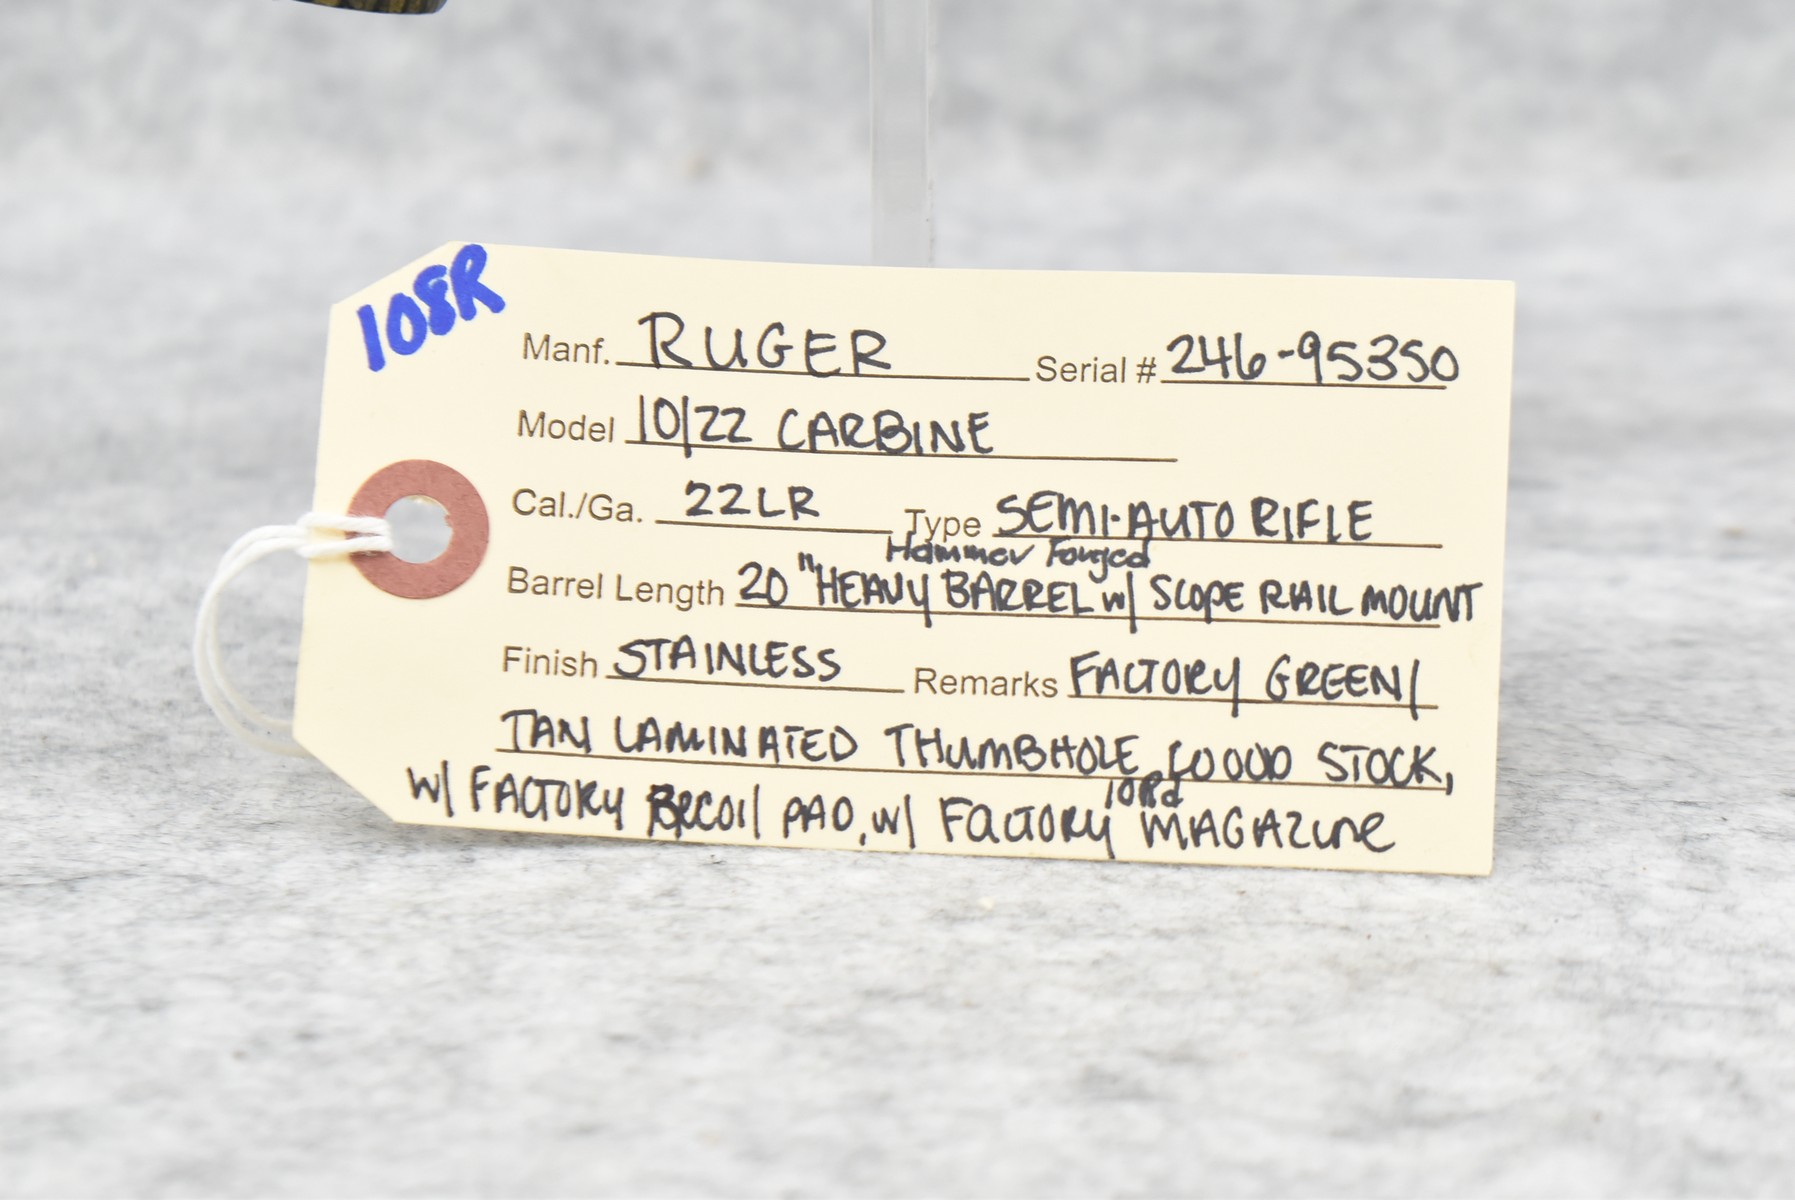 108R
Manf. RUGER Serial # 246-95350
Model 10/22 CARBINE
Cal./Ga. 22LR Type SEMI-AUTO RIFLE
Hammer Forged
Barrel Length 20" HEAVY BARREL w/ SCOPE RAIL MOUNT
Finish STAINLESS Remarks FACTORY GREEN/
TAN LAMINATED THUMBHOLE WOOD STOCK,
10Rd
W/ FACTORY RECOIL PAD, W/ FACTORY MAGAZINE